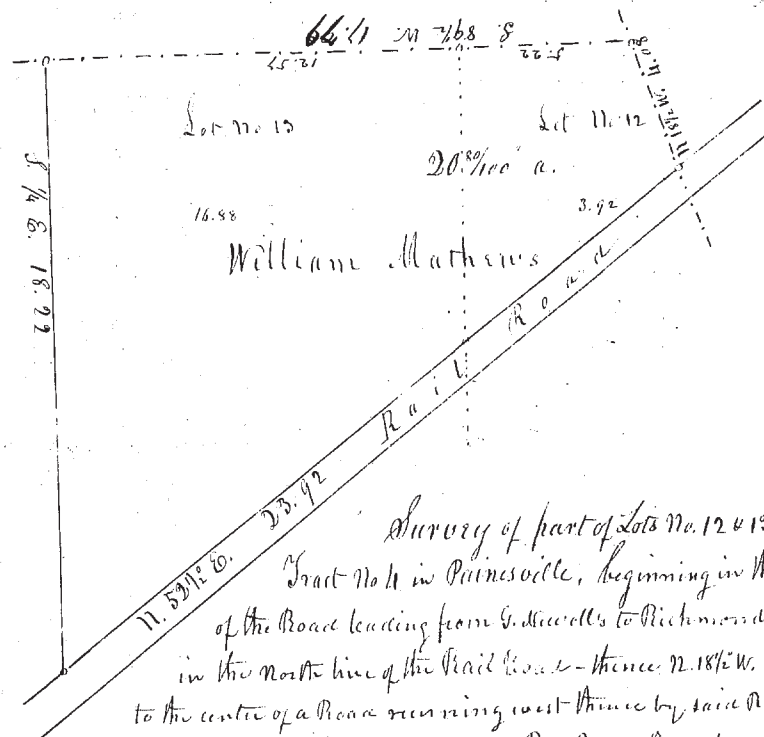 S. 89½ W. 17.79
12.57
5.22
N 18½ W. 4.08
Lot No 13
Lot No 12
20.80/100 a.
S. ¼ E. 18.22
16.88
3.92
William Mathews
Rail Road
N. 52½° E. 23.92
Survey of part of Lots No. 12 & 13
Tract No 4 in Painesville, beginning in th
of the Road leading from G. to Richmond
in the North line of the Rail Road - thence N. 18½° W.
to the center of a Road running west thence by said R